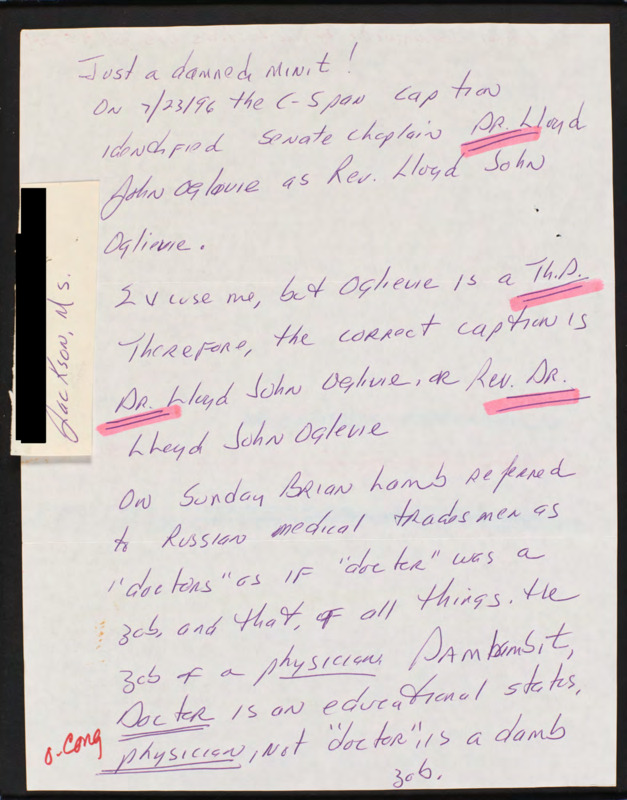 Just a damned minit!
On 7/23/96 the C-Span caption
identified Senate Chaplain Dr. Lloyd
John Oglovie as Rev. Lloyd John
Oglievie.
Excuse me, but Oglievie is a Th.D.
Therefore, the correct caption is
Dr. Lloyd John Oglivie, or Rev. Dr.
Lloyd John Oglevie
On Sunday Brian Lamb referred
to Russian medical tradesmen as
"doctors" as if "doctor" was a
job, and that, of all things. the
job of a physician. Dambambit,
Doctor is an educational states,
physician, not "doctor", is a damb
job.
Jackson, Ms.
O-Cong